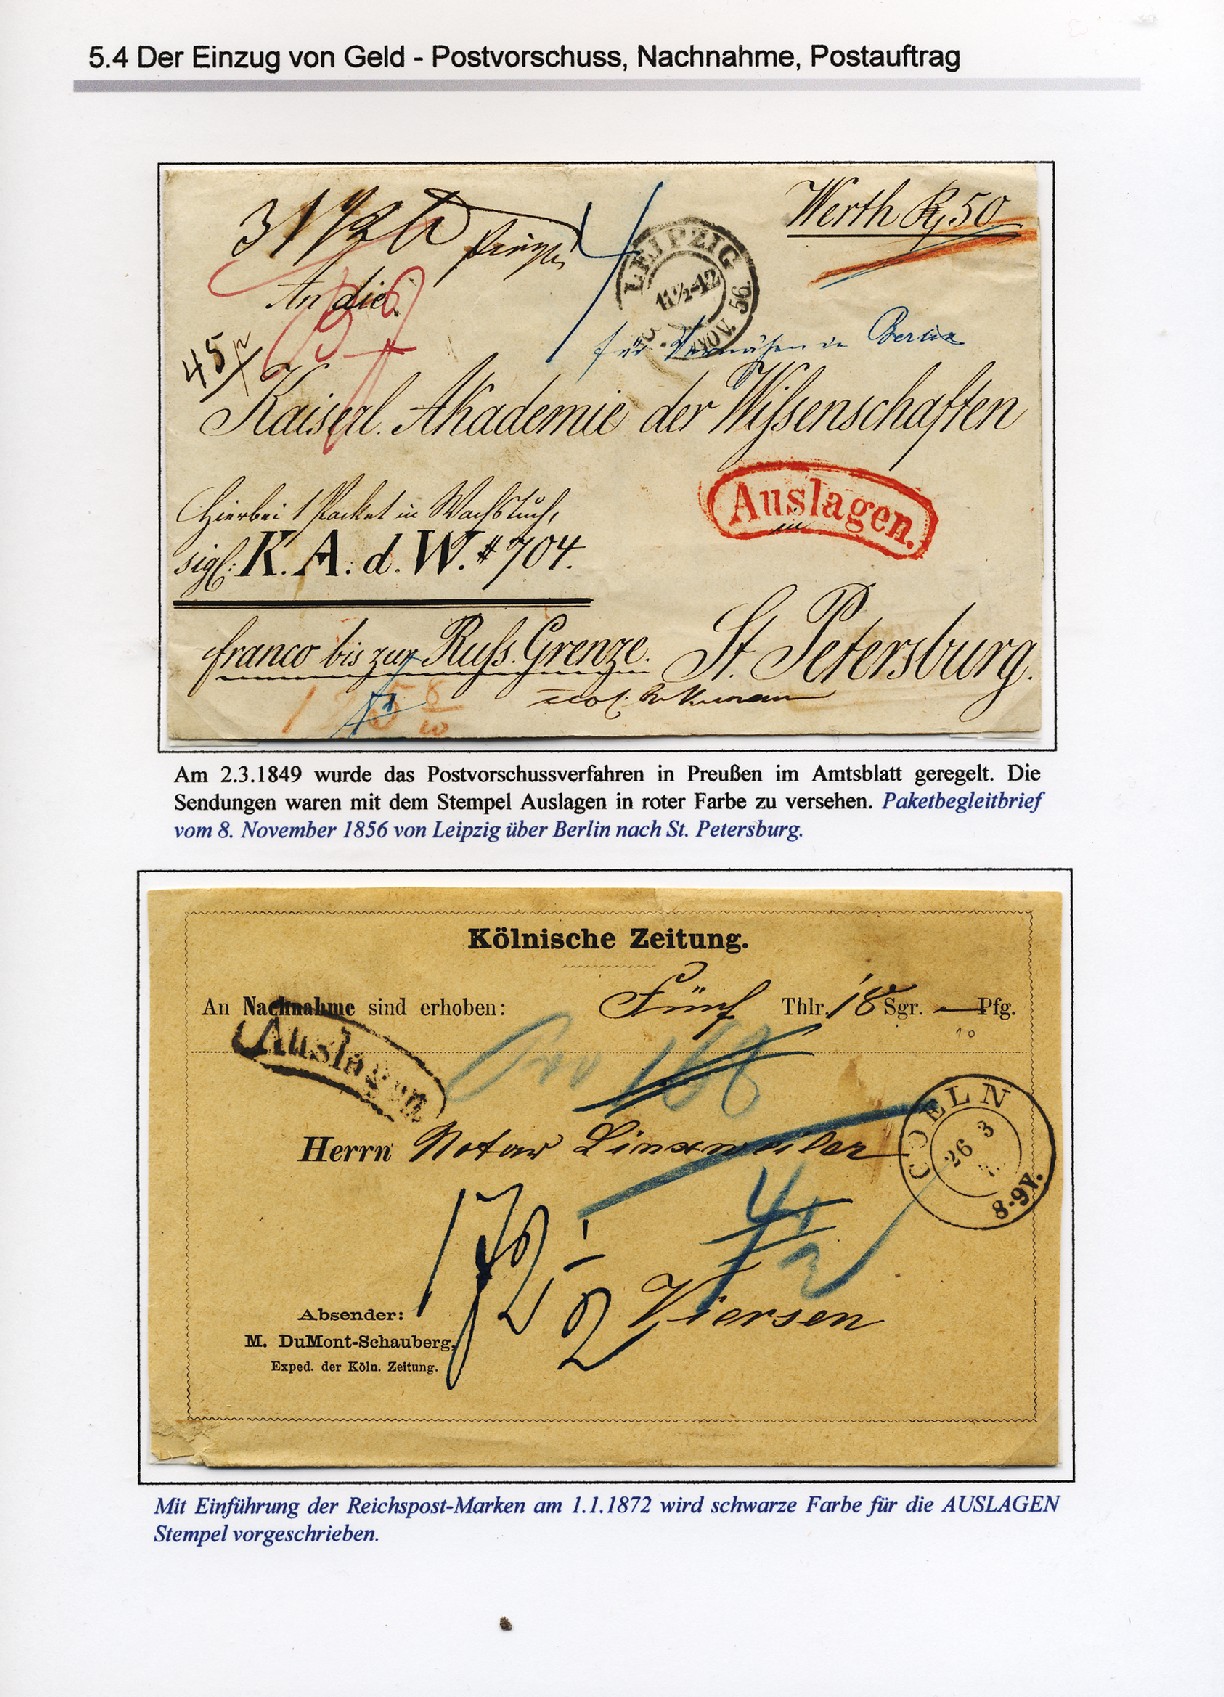 5.4 Der Einzug von Geld - Postvorschuss, Nachnahme, Postauftrag
Werth Rf 50
31 1/2
LEIPZIG
11½-12
NOV. 56
An die
45
Kaiserl. Akademie der Wissenschaften
Auslagen.
in
Hierbei 1 Packet in Wachstuch,
sigl: K. A. d. W. # 704.
franco bis zur Russ. Grenze.
St. Petersburg.
Am 2.3.1849 wurde das Postvorschussverfahren in Preußen im Amtsblatt geregelt. Die
Sendungen waren mit dem Stempel Auslagen in roter Farbe zu versehen. Paketbegleitbrief
vom 8. November 1856 von Leipzig über Berlin nach St. Petersburg.
Kölnische Zeitung.
An Nachnahme sind erhoben: Fünf Thlr. 18 Sgr. — Pfg.
Auslagen
168
COELN
26 3
8-9V.
Herrn Notar Linsenweiler
172 1/2
4 1/2
Viersen
Absender:
M. DuMont-Schauberg,
Exped. der Köln. Zeitung.
Mit Einführung der Reichspost-Marken am 1.1.1872 wird schwarze Farbe für die AUSLAGEN
Stempel vorgeschrieben.